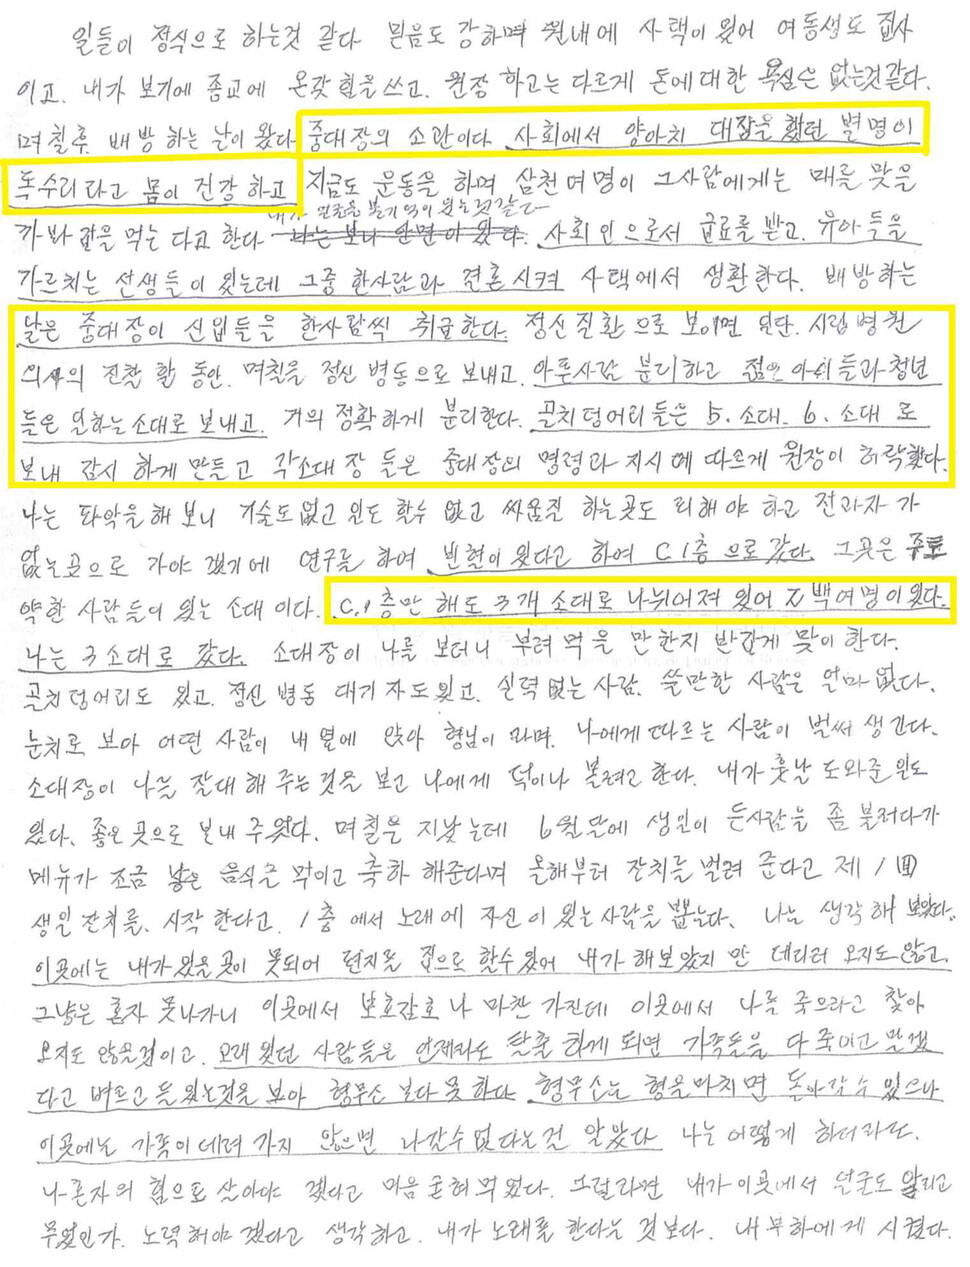 일들이 정식으로 하는것 같다 믿음도 강하며 원내에 사택이 있어 여동생도 집사
이고. 내가 보기에 종교에 온갖 힘을 쓰고. 원장 하고는 다르게 돈에대한 욕심은 없는것같다.
며칠후. 배방 하는 날이 왔다 중대장의 소관이다. 사회에서 양아치 대장을 했던 별명이
독수리라고 몸이 건강 하고 지금도 운동을 하며 삼천여명이 그사람에게는 매를 맞을
내가 언도을 보기 것 같다
까봐 겁을 먹는 다고 한다 나는 보니 안면이 있다. 사회인으로서 급료를 받고. 유아들을
가르치는 선생들이 있는데 그중 한사람과 결혼시켜 사택에서 생활한다. 배방하는
날은 중대장이 신입들을 한사람씩 취급한다. 정신질환으로 보이면 일단. 시립병원
의사의 진찰 할 동안. 며칠을 정신 병동으로 보내고. 아픈사람 분리하고 젊은 아이들과 청년
들은 일하는 소대로 보내고. 거의 정확하게 분리한다. 골치덩어리들은 5. 소대. 6. 소대 로
보내 감시 하게 만들고 각소대 장 들은 중대장의 명령과 지시에 따르게 원장이 허락했다.
나는 파악을 해 보니 기술도 없고 일도 할수 없고 싸움질 하는곳도 피해야 하고 전과자 가
없는곳으로 가야 겠기에 연구를 하여 빈현이 있다고 하여 C 1층 으로 갔다. 그곳은
약한 사람들이 있는 소대 이다. C.1층만 해도 3개 소대로 나뉘어져 있어 2백여명이 있다.
나는 3소대로 갔다. 소대장이 나를 보더니 부려 먹을 만 한지 반갑게 맞이 한다.
골치덩어리도 있고. 정신 병동 대기 자도 있고. 실력 없는 사람. 쓸만한 사람은 얼마 없다.
눈치로 보아 어떤 사람이 내 옆에 앉아 형님이 라며. 나에게 따르는 사람이 벌써 생긴다.
소대장이 나를 잘대 해 주는것을 보고 나에게 덕이나 볼려고 한다. 내가 훗날 도와준 일도
있다. 좋은 곳으로 보내 주었다. 며칠을 지났는데 6월달에 생일이 든사람을 좀 불러다가
메뉴가 조금 낳은 음식을 먹이고 축하 해준다며 올해부터 잔치를 벌려 준다고 제 1 回
생일 잔치를. 시작 한다고. 1층 에서 노래에 자신이 있는 사람을 뽑는다. 나는 생각해 보았다.
이곳에는 내가 있을 곳이 못되어 편지를 집으로 할수 있어 내가 해보았지 만 데리러 오지도 않고.
그냥은 혼자 못나가니 이곳에서 보호감호 나 마찬 가진데 이곳에서 나를 죽으라고 찾아
오지도 않을것이고. 오래 있던 사람들은 언제라도 탈출 하게 되면 가족들을 다 죽이고 말겠
다고 벼르고 들 있는것을 보아 형무소 보다 못 하다 형무소는 형을 마치면 돌아갈 수 있으나
이곳에는 가족이 데려 가지 않으면 나갈수 없다는것 알았다 나는 어떻게 하더라도.
나혼자의 힘으로 살아야 겠다고 마음 굳혀 먹었다. 그럴라면 내가 이곳에서 얼굴도 알리고
무엇인가. 노력해야 겠다고 생각하고. 내가 노래를 한다는 것 보다. 내 부하에게 시켰다.